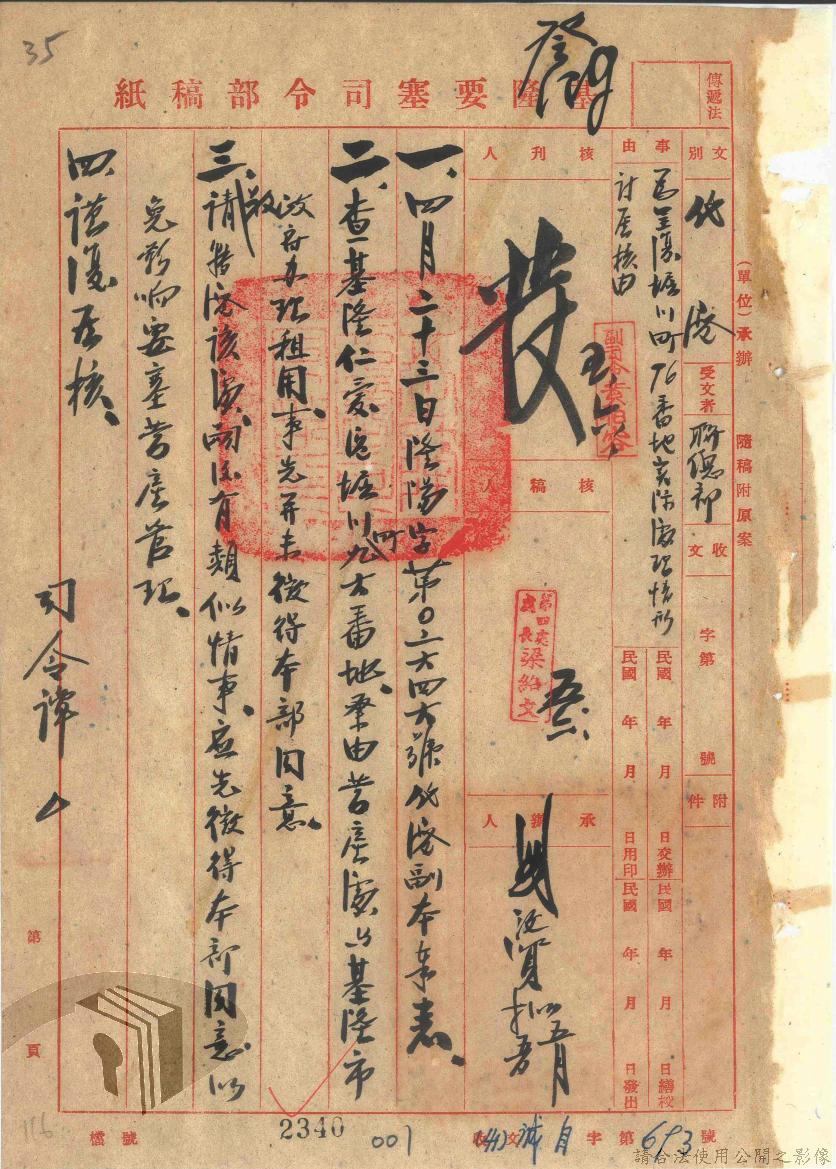 35
基隆要塞司令部稿紙
傳遞法
(單位)承辦 隨稿附原案
文別 代電
受文者 聯總部
收文 字第 號
附件
事由
為呈復堀川町76番地實際處理情形
計呈核由
民國 年 月 日交辦
民國 年 月 日繕校
民國 年 月 日用印
民國 年 月 日發出
核判人
發
副司令袁伯容
核稿人
第四處
處長梁紹文
承辦人
五月
一、四月二十三日隆陽字第0二六四六號代電副本奉悉、
二、查基隆仁愛區堀川町九六番地、業由營產處與基隆市
政府辦理租用、事先并未徵得本部同意、
三、請轉電該處嗣後有類似情事、應先徵得本部同意以
免影响要塞營產管理、
四、謹復呈核、
司令諱
第 頁
檔號
2340
001
收文 (41)誠自字第693號
116
請合法使用公開之影像